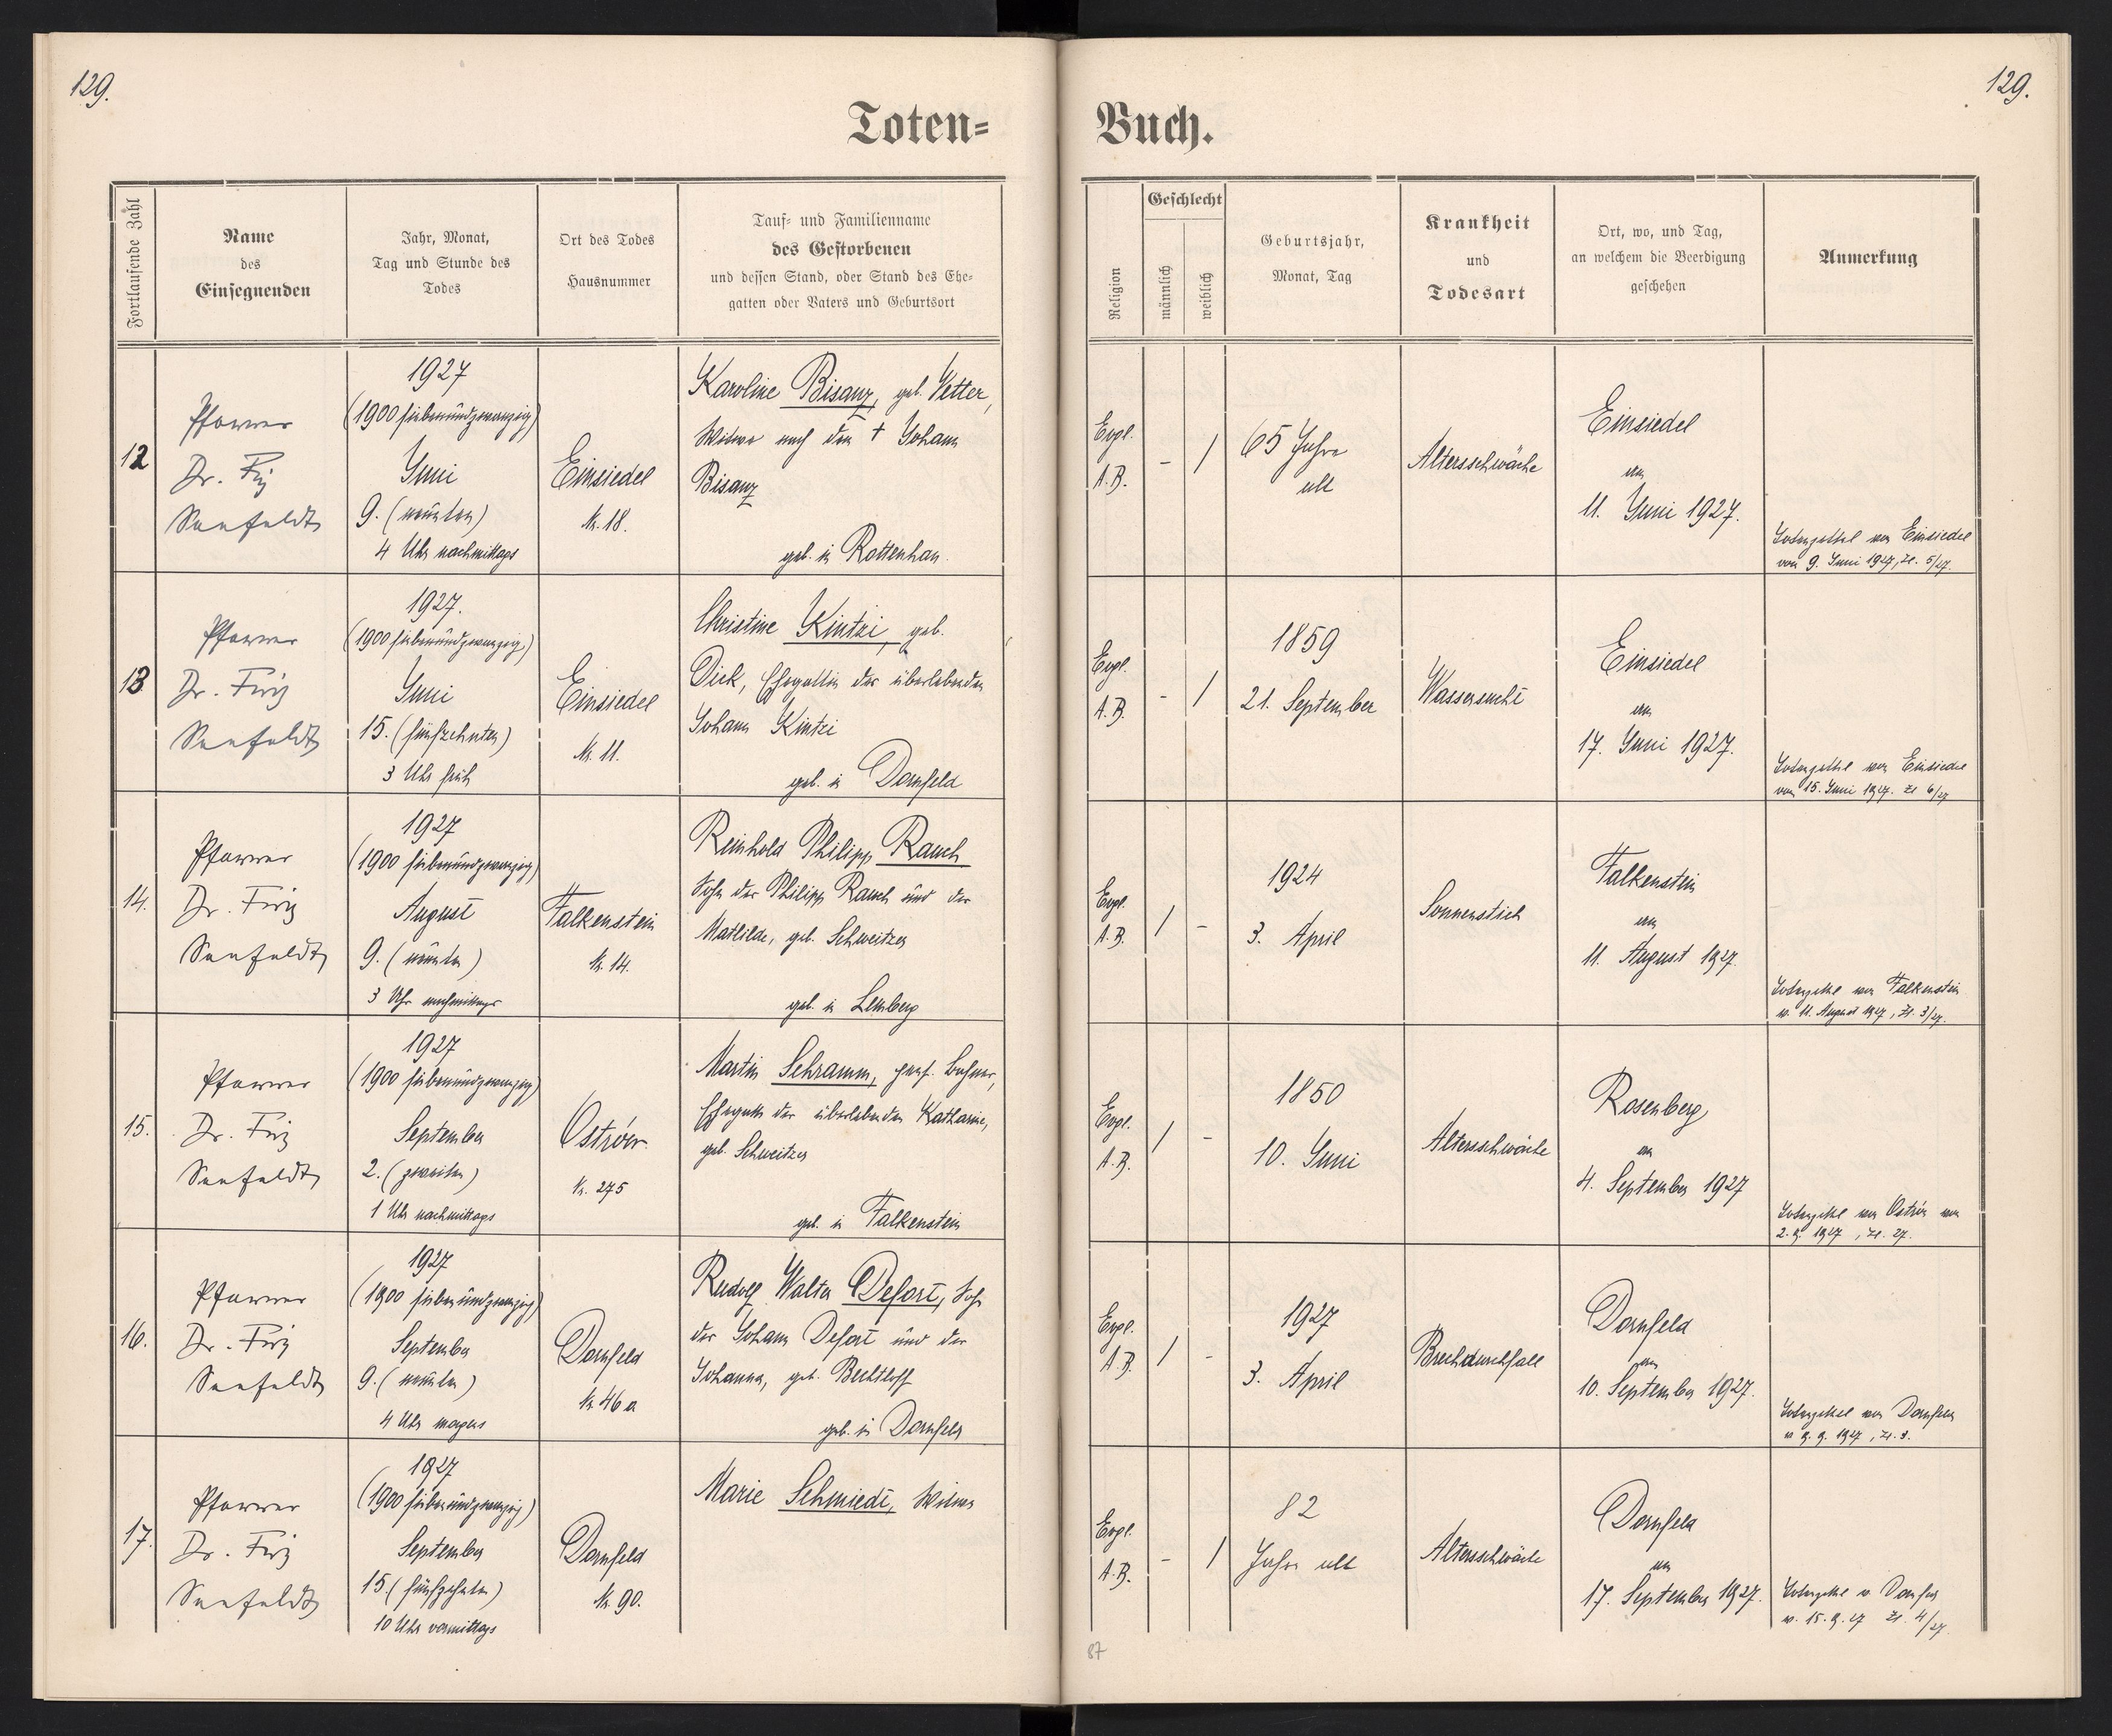 129.
129.
Toten=
Buch.
Fortlaufende Zahl
Name
des
Einsegnenden
Jahr, Monat,
Tag und Stunde des
Todes
Ort des Todes
Hausnummer
Tauf= und Familienname
des Gestorbenen
und dessen Stand, oder Stand des Ehe=
gatten oder Vaters und Geburtsort
Religion
Geschlecht
männlich
weiblich
Geburtsjahr,
Monat, Tag
Krankheit
und
Todesart
Ort, wo, und Tag,
an welchem die Beerdigung
geschehen
Anmerkung
12
Pfarrer
Dr.
Seefeldt
1927
(1900 siebenundzwanzig)
Juni
9. (neunten)
4 Uhr nachmittags
Einsiedel
Nr. 18.
Karoline Bisanz, geb. Vetter,
Witwe nach dem † Johann
Bisanz
geb. in Rottenhan.
Evgl.
A.B.
- /
65 Jahre
alt
Altersschwäche
Einsiedel
am
11. Juni 1927.
Totenzettel von Einsiedel
vom 9. Juni 1927, Zl. 5/27.
13
Pfarrer
Dr.
Seefeldt
1927.
(1900 siebenundzwanzig)
Juni
15. (fünfzehnten)
3 Uhr früh
Einsiedel
Nr. 11.
Christine Kintzi, geb.
Dick, Ehegattin des überlebenden
Johann Kintzi
geb. in Dornfeld
Evgl.
A.B.
- /
1859
21. September
Wassersucht
Einsiedel
am
17. Juni 1927.
Totenzettel von Einsiedel
vom 15. Juni 1927. Zl 6/27
14.
Pfarrer
Dr.
Seefeldt
1927
(1900 siebenundzwanzig)
August
9. (neunten)
3 Uhr nachmittags
Falkenstein
Nr. 14.
Reinhold Philipp Rauch
Sohn des Philipp Rauch und der
Mathilde, geb. Schweitzer
geb. in Lemberg
Evgl.
A.B.
/ -
1924
3. April
Sonnenstich
Falkenstein
am
11. August 1927.
Totenzettel von Falkenstein
v. 11. August 1927, Zl. 3/27.
15.
Pfarrer
Dr.
Seefeldt
1927
(1900 siebenundzwanzig)
September
2. (zweiten)
1 Uhr nachmittags
Ostrów.
Nr. 275
Martin Schramm,
Ehegatte der überlebenden Katharine,
geb. Schweitzer
geb. in Falkenstein
Evgl.
A.B.
/ -
1850
10. Juni
Altersschwäche
Rosenberg
am
4. September 1927
Totenzettel von Ostrów vom
2. 9. 1927, Zl. 27.
16.
Pfarrer
Dr.
Seefeldt
1927
(1900 siebenundzwanzig)
September
9. (neunten)
4 Uhr morgens
Dornfeld
Nr. 46 a
Rudolf Walter Defort, Sohn
des Johann Defort und der
Johanna, geb. Bechtloff
geb. in Dornfeld
Evgl.
A.B.
/ -
1927
3. April
Brechdurchfall
Dornfeld
am
10. September 1927.
Totenzettel von Dornfeld
v. 9. 9. 1927, Zl. 3.
17.
Pfarrer
Dr.
Seefeldt
1927
(1900 siebenundzwanzig)
September
15. (fünfzehnten)
10 Uhr vormittags
Dornfeld
Nr. 90.
Marie Schmiedt, Witwe
Evgl.
A.B.
- /
82
Jahre alt
Altersschwäche
Dornfeld
am
17. September 1927.
Totenzettel v. Dornfeld
v. 15. 9. 27 Zl. 4/27.
87